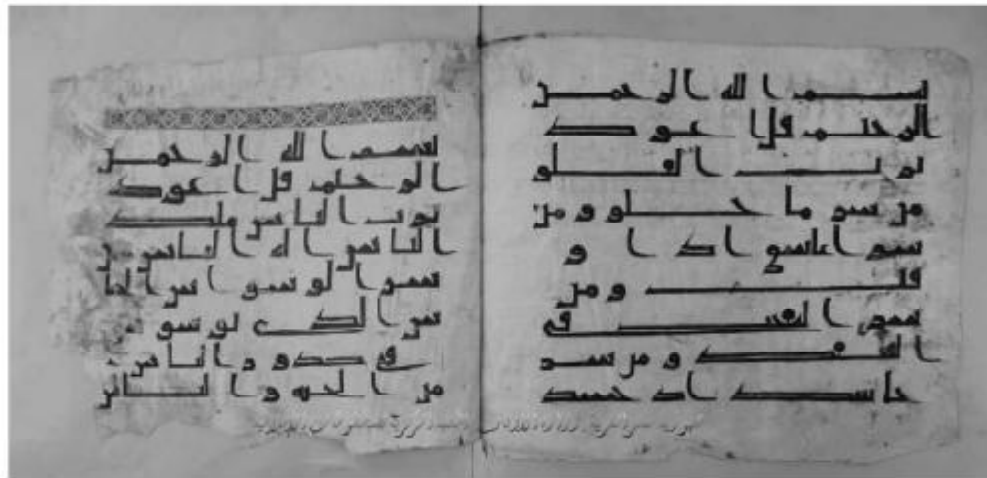 بسم الله الرحمن
الرحيم قل اعوذ
برب الفلق
من شر ما خلق ومن
شر غاسق اذا و
قب ومن
شر النفثت في
العقد ومن شر
حاسد اذا حسد
بسم الله الرحمن
الرحيم قل اعوذ
برب الناس ملك
الناس اله الناس من
شر الوسواس الخنا
س الذي يوسوس
في صدور الناس
من الجنة والناس